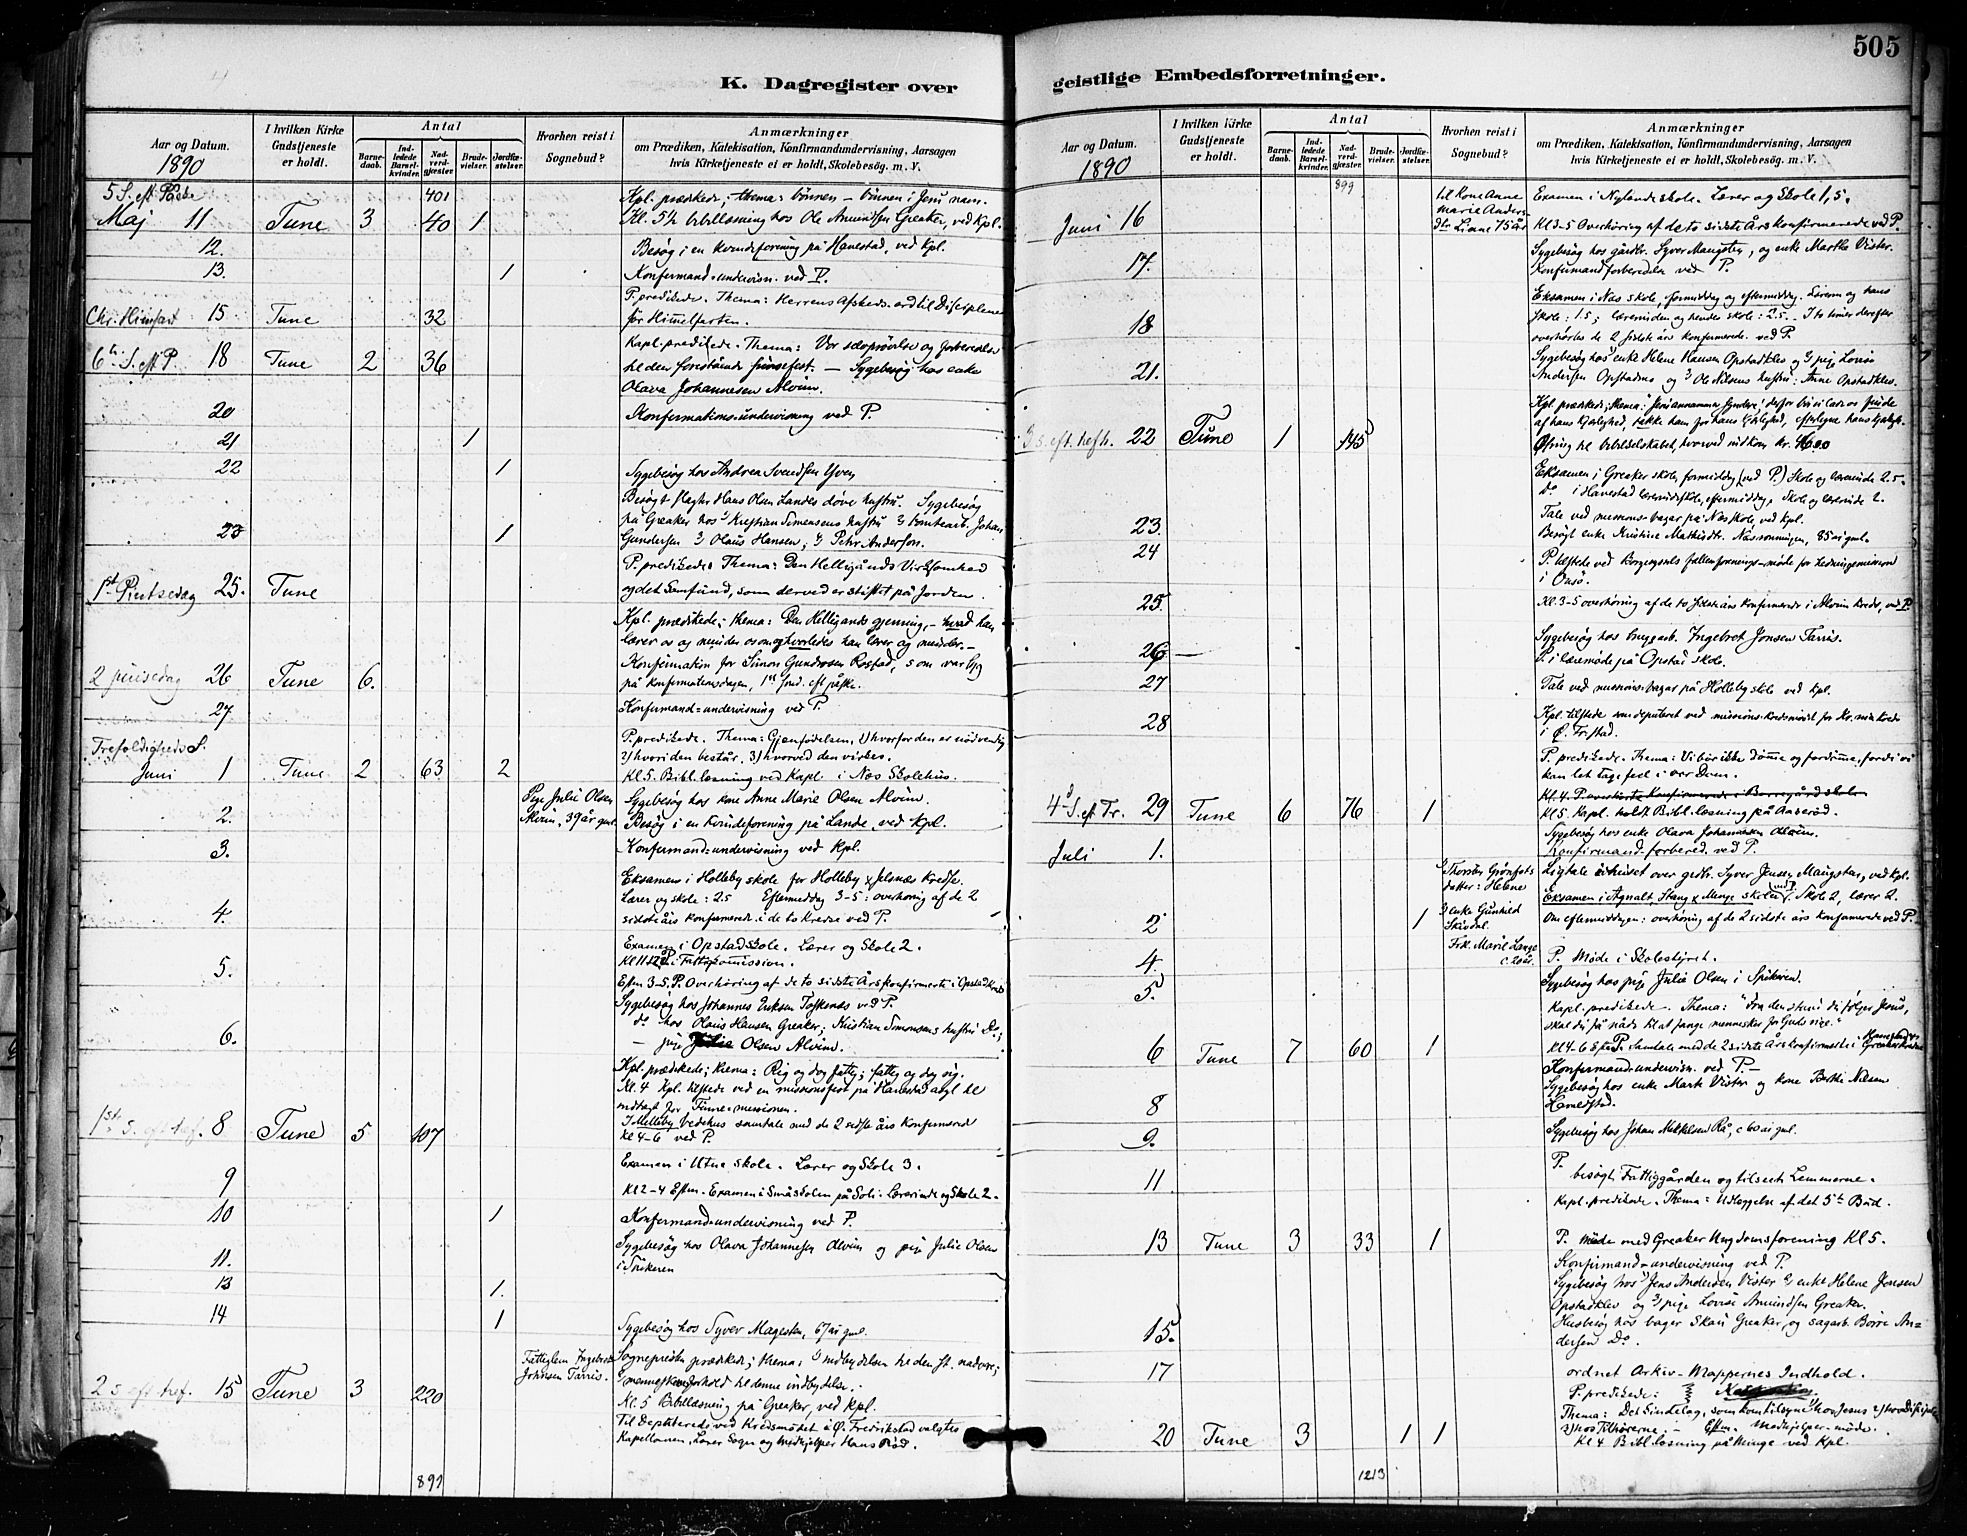 505
K. Dagregister over
geistlige Embedsforretninger.
Aar og Datum.
1890
I hvilken Kirke Gudstjeneste er holdt.
Antal
Barnedaab.
Indledede Barselkvinder.
Nadverdgjæster
Brudevielser.
Jordfæstelser.
Hvorhen reist i Sognebud?
Anmærkninger
om Prædiken, Katekisation, Konfirmandundervisning, Aarsagen
hvis Kirketjeneste ei er holdt, Skolebesøg. m. V.
5 S. eft Paaske 401 Kpl. prædikede; thema: bönnen – bönnen i Jesu navn.
Maj 11 Tune 3 40 1 Kl. 5½ bibellæsning hos Ole Amundsen Greaker, ved Kpl.
12. Besøg i en kvindeforening på Hanestad, ved Kpl.
13. 1 Konfirmand-undervisn. ved P.
P. predikede. Thema: Herrens Afskeds-ord til Disciplene
Chr. Himfart 15 Tune 32 før Himmelfarten.
Kapl. predikede. Thema: Vor
6te S. eft P. 18 Tune 2 36 til den forestående pinsefest. – Sygebesøg hos enke
Olava Johannesen Alvim.
20 Konfirmations-undervisning ved P.
21 1
22 1 Sygebesøg hos Andrea Svendsen Yven
Besøgt Hans Olsen Landes døve hustru. Sygebesøg
på Greaker hos Kristian Simensens hustru Johan
23 1 Gundersen Olaus Hansen, Petr Andersen.
P. predikede Thema: Den Helligånds Virksomhed
1st Pintsedag 25. Tune og det Samfund, som derved er stiftet på Jorden.
Kpl. prædikede; thema: Den Helligånds gjerning, – hvad han
lærer os og minder os om og hvorledes han lærer og minder. –
Konfirmation for Simon Gundersen Rostad, som var syg
2 pinsedag 26 Tune 6. på konfirmationsdagen, 1st sønd. eft påske.
27 Konfirmand-undervisning ved P.
Trefoldigheds S. P. predikede. Thema: Gjenfødelsen, 1) hvorfor den er nødvendig
2) hvori den består, 3) hvorved den virkes.
Juni 1 Tune 2 63 2 Kl. 5. Bibl. læsning ved Kapl i Nes Skolehus.
Pige Julie Olsen Sygebesøg hos kone Anne Marie Olsen Alvim.
2. Alvim, 39 år gml. Besøg i en kvindeforening på Lande, ved Kpl.
3. Konfirmand-undervisning ved Kpl.
Eksamen i Holleby skole for Holleby & Jelsnæs kredse.
Lærer og skole: 2.5 Eftermiddag 3-5: overhøring af de 2
4. sidste års konfirmerede i de to kredse ved P. 1
Examen i Opstad skole. Lærer og Skole 2.
5. i Fattigkommission.
Eftm 3–5. P. Overhøring af de to sidste Års konfirmerte i Opstad Kreds
Sygebesøg hos Johannes Eriksen ved P.
do hos Olaus Hansen Greaker; Kristian Simonsens hustru Do;
6. – pige Julie Olsen Alvim.
Kpl. prædikede; thema: Rig og dog fattig; fattig og dog rig.
Kl. 4 Kpl. tilstede ved en missionsfest på Hanestad til
indtægt for Finne-missionen.
1st S. eft tref. 8 Tune 5 107 I Melleby bedehus samtale med de 2 sidste års konfirmerede
Kl 4–6 ved P.
9 Examen i Utne skole. Lærer og Skole 3.
Kl 2–4 Eftm. Examen i Småskolen på Soli: Lærerinde og Skole 2.
10 1 Konfirmand-undervisning ved P.
Sygebesøg hos Olava Johannesen Alvim og pige Julie Olsen
11. i Spikeren
13 1.
14 1 Sygebesøg hos Syver Magesten, 67 år gml.
Fattiglem Ingebret Sognepresten prædikede; thema: indbydelsen til den st. nadvere;
Johnsen Tarris. menneskenes forhold til denne indbydelse.
2 S. eft tref. 15 Tune 3 220 Kl. 5 Bibellæsning på Greaker, ved Kpl.
Til Deputerede ved Kredsmødet i Ø. Fredrikstad valgtes
Kapellanen, Lærer Sogn og medhjelper Hans Rød.
899
Aar og Datum.
1890
I hvilken Kirke Gudstjeneste er holdt.
Antal
Barnedaab.
Indledede Barselkvinder.
Nadverdgjæster
Brudevielser.
Jordfæstelser.
Hvorhen reist i Sognebud?
Anmærkninger
om Prædiken, Katekisation, Konfirmandundervisning, Aarsagen
hvis Kirketjeneste ei er holdt, Skolebesøg. m. V.
899 til Kone Anne Examen i Nylande skole. Lærer og Skole 1,5.
Marie Anders-
Juni 16 dtr Linne 75 år Kl 3–5 Overhøring af de to sidste Års konfirmerede ved P.
17. Sygebesøg hos gårdbr. Syver Maugsten, og enke Marthe Vister.
Konfirmandforberedelse ved P.
Eksamen i Nes skole, formiddag og eftermiddag. Læreren og hans
18 skole: 1.5; lærerinden og hendes skole: 2.5. I to timer derefter
overhørtes de 2 sidste års konfirmerede. ved P.
Sygebesøg hos enke Helene Hansen Opstadkles og pige Lovise
21. Andersen Opstadnes og Ole Nilsens hustru: Anne Opstadkles.
Kpl. prædikede; thema: Jesus annammer Syndere; derfor bør vi lade os finde
af hans kjærlighed, takke ham for hans kjærlighed, efterligne hans kjærligh.
3 S. eft. trefh. 22 Tune 1 145 Ofring til bibelselskabet, hvorved indkom kr.
Eksamen i Greaker skole, formiddag (ved P.) Skole og lærerinde 2.5
do i Hanestad eftermiddag. Skole og lærerinde 2.
Tale ved missions-bazar på Nes skole, ved Kpl.
23. Besøgt enke Kristine Mathisdtr. 85 år gml.
24 P. tilstede ved Borgesyssels fællesforenings-møde for hedningemissionen
i Onsø.
25. Kl. 3–5 overhøring af de to sidste års konfirmerede i Alvim kreds, ved P.
Sygebesøg hos Ingebret Jonsen Tarris.
26 – P. i læremøde på Opstad skole.
27 Tale ved missions-bazar på Holleby skole ved Kpl.
28 Kpl. tilstede som deputeret ved missions-kredsmødet for
i Ø. Fr.stad.
P. predikede. Thema: Vi bør ikke dømme og fordømme, fordi vi
kan let tage feil i vor Dom.
4d S. eft Tr. 29 Tune 6 76 1 Kl 5. Kapl. holdt Bibl. læsning på Aaserød.
Sygebesøg hos enke Olava Johannesen Alvim.
Juli 1. Konfirmand-forbered. ved P.
Thorsten Grønfots Ligtale i huset over gdbr. Syver Jensen Maugsten, ved Kpl.
datter: Helene Examen i Agnalt, Stang & Minge skoler ved P. Skole 2, lærer 2.
2 1 enke Gunhild Om eftermiddagen: overhøring af de 2 sidste års konfirmerede ved P.
Skivdal.
Frk. Marie Lange
4. c. 20 år. P. Møde i Skolestyret.
5. Sygebesøg hos pige Julie Olsen i Spikeren.
Kapl. predikede – Thema: "Fra den stund du følger Jesus,
skal du få nåde til at fange mennesker for Guds rige."
6 Tune 7 60 1 Kl 4–6 Eftm. P. Samtale med de 2 sidste Års konfirmerte i Hanestad & Greaker kredse
Konfirmand-undervisn. ved P. –
Sygebesøg hos enke Marte Vister og kone Berthe Nilsen
8 Hanestad.
9. Sygebesøg hos Johan Mikkelsen Rå, c 60 år gml.
P.
11 besøgt Fattiggården og tilseet Lemmerne.
Kapl. predikede. Thema: Udleggelse af det 5te Bud.
13 Tune 3 33 1 P. Møde med Greaker Ungdomsforening Kl 5.
Konfirmand-undervisning ved P.
Sygebesøg hos Jens Andersen Vister enke Helene Jensen
Opstadklev og pige Lovise Amundsen Greaker.
15. Husbesøg hos bager Skau Greaker og sagarb. Børre An-
dersen Do.
17 ordnet Arkiv-Mappernes Indhold.
P. predikede:
Thema: Det Sindelag, som kom tilsyne 1) hos Jesus 2) hos disciplene
20 Tune 3 1 1 3) hos Tilhørerne. – Eftm. Medhjelper-møde.
Kl 4 Bibl. læsning på Minge ved Kpl.
1213